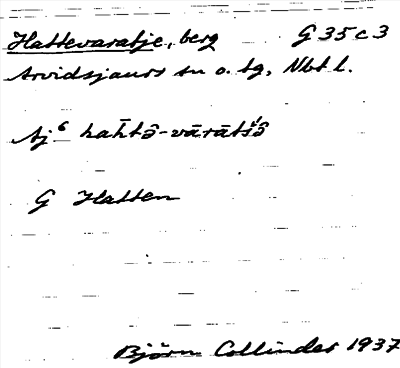 Hattevaratje, berg G 35 c 3
Arvidsjaurs sn o. tg, Nbt l.
Aj⁶ hah̄tə̂-vārāts̓ə̂
G Hatten
Björn Collinder 1937